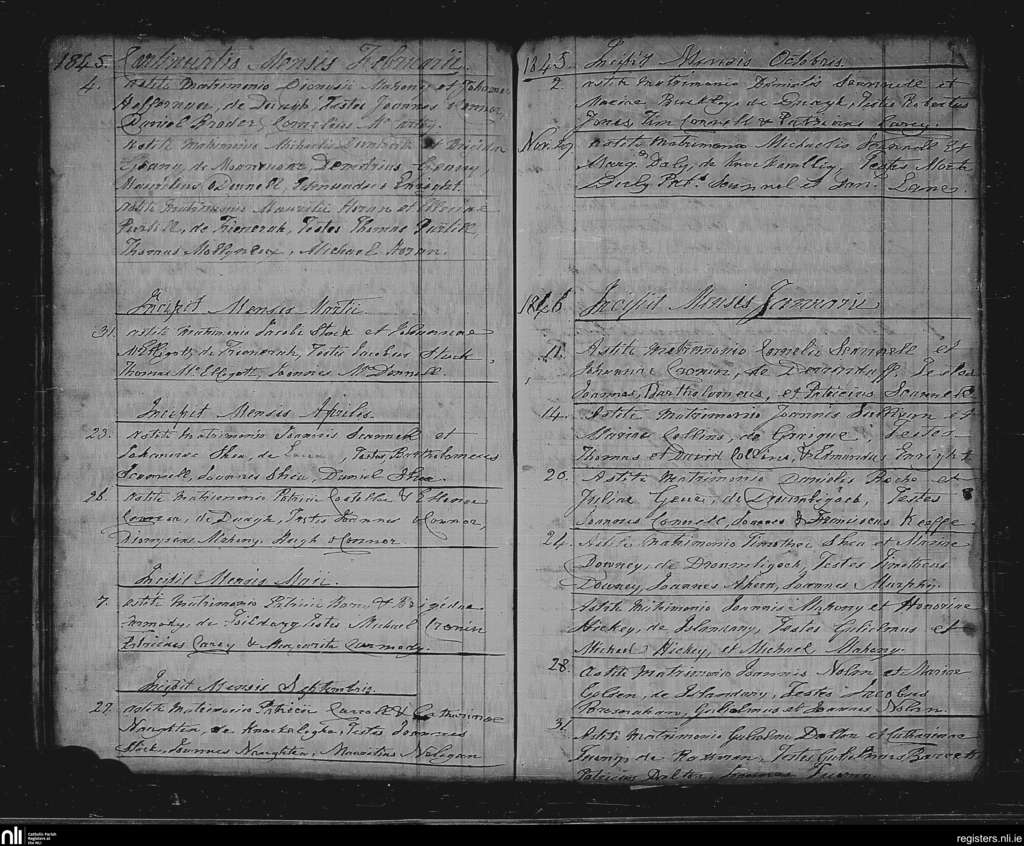 1845. Continuatis Mensis Februarii.
4. Astiti Matrimonio Dionysii Mahony et Johannae
Heffernan, de Duagh, Testes Joannes Connor,
Daniel Broder, Cornelius McCarthy.
Astiti Matrimonio Michaelis et Brigidae
de Testes
Mauritius O Donnell, Edmundus Enright.
Astiti Matrimonio Mauritii Horan et Ellenae
Purtill, de Trienerah, Testes Thomas Purtill,
Thomas Mollyneux, Michael Horan.
Incipit Mensis Martii.
31. Astiti Matrimonio Jacobi Stack et Johannae
McElligott, de Trienerah, Testes Jacobus Stack,
Thomas McElligott, Joannes McDonnell.
Incipit Mensis Aprilis.
23. Astiti Matrimonio Joannis Scannell et
Johannae Shea, de , Testes Bartholomeus
Scannell, Joannes Shea, Daniel Shea.
26. Astiti Matrimonio Patricii Costello & Ellenae
de Duagh, Testes Joannes O Connor,
Dionysius Mahony, Hugh O Connor
Incipit Mensis Maii.
7. Astiti Matrimonio Patricii & Brigidae
Carmody, de Testes Michael Cronin
Patricius Carey & Margarita Carmody.
Incipit Mensis Septembris.
27. Astiti Matrimonio Patricii Carroll & Catharinae
Naughten, de Testes Joannes
Stack, Joannes Naughten, Mauritius Nelegan
1845. Incipit Mensis Octobris.
2. Astiti Matrimonio Danielis Scannell et
Mariae Buckley, de Duagh, Testes Robertus
Jones, Tim Connell & Patricius Carey.
Nov. 27 Astiti Matrimonio Michaelis Scannell Et
Margt. Daly, de Testes Morty
Daly Patk. Scannel et Jno. Lane.
1846 Incipit Mensis Januarii
11. Astiti Matrimonio Cornelii Scannell et
Johannae Cronin, de Derrinduff, Testes
Joannes, Bartholomeus, et Patricius Scannell.
14. Astiti Matrimonio Joannis Sullivan et
Mariae Collins, de Testes
Thomas et David Collins, & Edmundus Enright
20. Astiti Matrimonio Danielis Roche et
Juliae de Dromligach, Testes
Joannes Connell, Joannes & Franciscus Keeffe.
24. Astiti Matrimonio Timothei Shea et Mariae
Downey, de Dromligach, Testes Timotheus
Downey, Joannes Ahern, Joannes Murphy.
Astiti Matrimonio Joannis Mahony et Honoriae
Hickey, de Islandany, Testes Gulielmus et
Michael Hickey, et Michael Mahony.
28. Astiti Matrimonio Joannis Nolan et Mariae
Golden, de Islandany, Testes Jacobus
Bresnahan, Gulielmus et Joannes Nolan.
31. Astiti Matrimonio Gulielmi Dalton et Catharinae
de Testes Gulielmus Barrett
Patricius Dalton
nli
Catholic Parish
Registers at
the NLI
registers.nli.ie